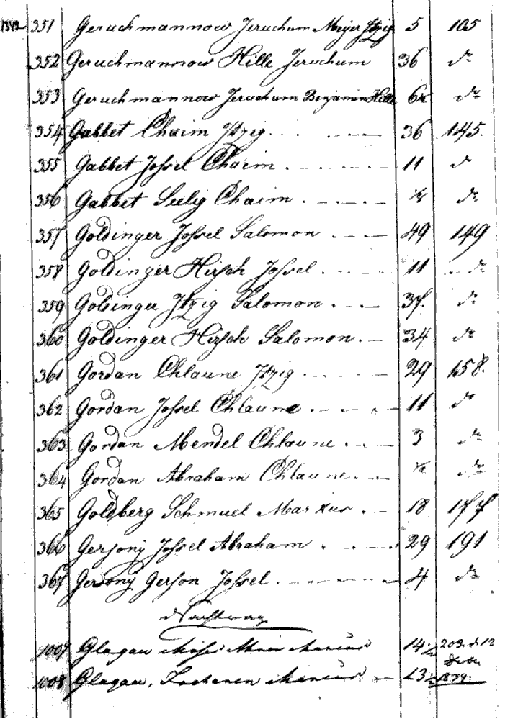 351 Geruchmannow Jeruchum Meyer Itzig 5 105
352 Geruchmannow Hille Jeruchum 36 do
353 Geruchmannow Jeruchum Benjamin Hille do
354 Gabbet Chaim Itzig 36 145
355 Gabbet Jossel Chaim 11 do
356 Gabbet Seelig Chaim ½ do
357 Goldinger Jossel Salomon 49 149
358 Goldinger Hirsch Jossel 11 do
359 Goldinger Itzig Salomon 37 do
360 Goldinger Hirsch Salomon 34 do
361 Gordan Chlaune Itzig 29 158
362 Gordan Jossel Chlaune 11 do
363 Gordan Mendel Chlaune 3 do
364 Gordan Abraham Chlaune ½ do
365 Goldberg Schmuel Markus 18 177
366 Gersonj Jossel Abraham 29 191
367 Gersonj Gerson Jossel 4 do
Nachtrag
1007 Glagau 14 203
1008 Glagau 13